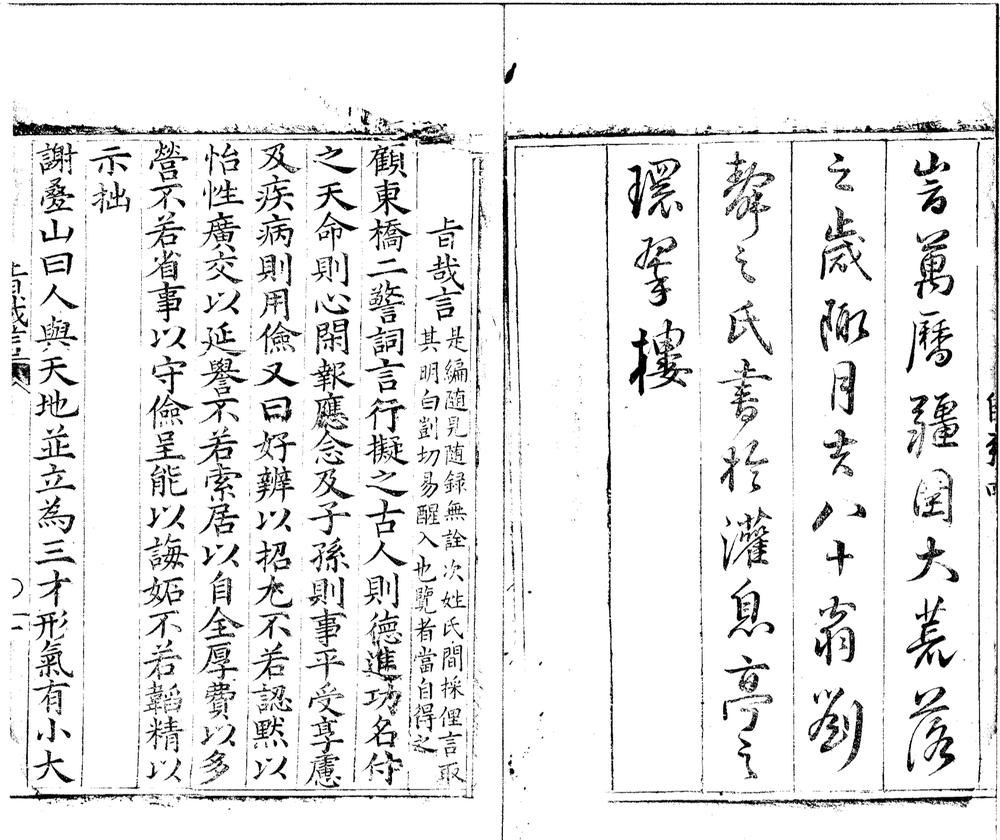 旹萬曆彊圉大荒落
之歲陬月吉八十翁劉
聲之氏書於灌息亭之
環翠樓
旨哉言
是編随見随録無詮次姓氏間採俚言取
其明白剴切易醒人也覽者當自得之
顧東橋二警詞言行擬之古人則德進功名付
之天命則心閑報應念及子孫則事平受享慮
及疾病則用儉又曰好辨以招尤不若認默以
怡性廣交以延譽不若索居以自全厚費以多
營不若省事以守儉呈能以誨妬不若韜精以
示拙
謝疊山曰人與天地並立為三才形氣有小大
旨哉言
一